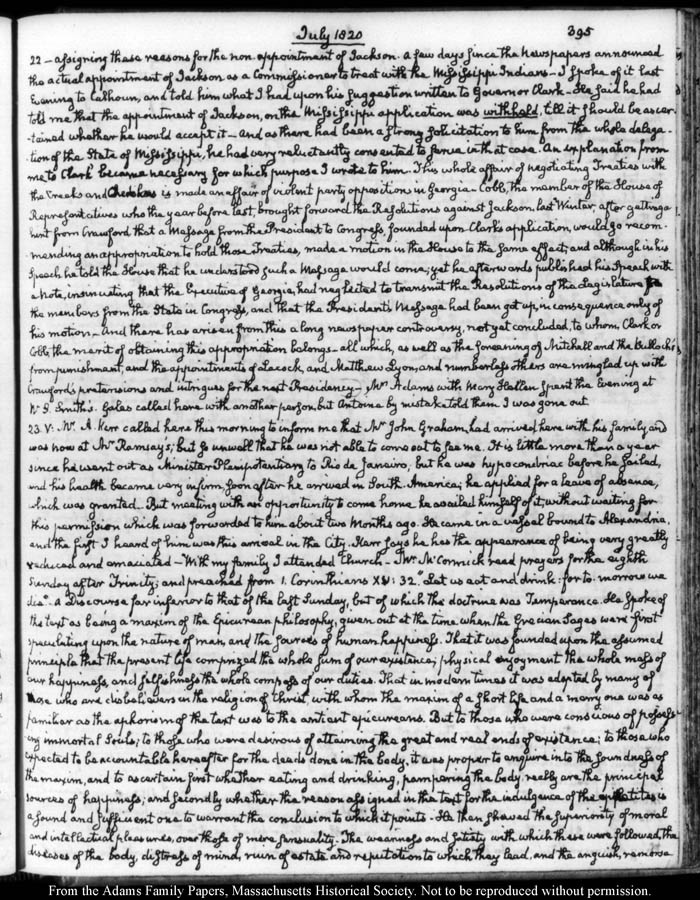 July 1820
395
22 — assigning these reasons for the non appointment of Jackson. a few days since the Newspapers announced
the actual appointment of Jackson as a Commissioner to treat with the Mississippi Indians — I spoke of it last
Evening to Calhoun, and told him what I had upon his suggestion written to Governor Clark — He said he had
told me that the appointment of Jackson, on the Mississippi application was withheld, till it should be ascer-
tained whether he would accept it — and as there had been a strong solicitation to him from the whole delega-
tion of the State of Mississippi, he had very reluctantly consented to serve in that case. An explanation from
me to Clark became necessary for which purpose I wrote to him. This whole affair of negotiating Treaties with
the Creeks and Cherokees is made an affair of violent party opposition in Georgia — Cobb, the member of the House of
Representatives who the year before last, brought forward the Resolutions against Jackson, last Winter, after getting a
hint from Crawford that a Message from the President to Congress, founded upon Clark's application, would go recom-
mending an appropriation to hold those Treaties, made a motion in the House to the same effect; and although in his
Speach he told the House that he understood such a Message would come; yet he afterwards published his Speach with
a note, insinuating that the Executive of Georgia, had neglected to transmit the Resolutions of the Legislature
the members from the State in Congress, and that the President's Message had been got up, in consequence only of
his motion — And there has arisen from this a long newspaper controversy, not yet concluded, to whom, Clark or
Cobb, the merit of obtaining this appropriation belongs — all which, as well as the screening of Mitchell and the Bullochs
from punishment, and the appointments of Lacock, and Matthew Lyon, and numberless others are mingled up with
Crawford's pretensions and intrigues for the next Presidency — Mrs Adams with Mary Hellen spent the Evening at
W. S. Smith's. Gales called here with another person, but Antoine by mistake told them I was gone out.
23. V: Mr A. Kerr called here this morning to inform me that Mr John Graham, had arrived here with his family and
was now at Mr Ramsay's; but so unwell that he was not able to come out to see me. It is little more than a year
since he went out as Minister Plenipotentiary to Rio de Janeiro, but he was hypocondriac before he sailed,
and his health became very infirm soon after he arrived in South America; he applied for a leave of absence,
which was granted. But meeting with an opportunity to come home he availed himself of it, without waiting for
this permission which was forwarded to him about two Months ago. He came in a vessel bound to Alexandria,
and the first I heard of him was this arrival in the City. Kerr says he has the appearance of being very greatly
reduced and emaciated — With my family I attended Church — Mr McCormick read prayers for the eighth
Sunday after Trinity; and preached from 1. Corinthians XV: 32. "Let us eat and drink: for to-morrow we
die" — a Discourse far inferior to that of the last Sunday, but of which the doctrine was Temperance. He spoke of
the text as being a maxim of the Epicurean philosophy, given out at the time when the Grecian Sages were first
speculating upon the nature of man, and the sources of human happiness. That it was founded upon the assumed
principle that the present life comprized the whole sum of our existence; physical enjoyment the whole mass of
our happiness, and selfishness the whole compass of our duties. That in modern times it was adopted by many of
those who are disbelievers in the religion of Christ, with whom the maxim of a short life and a merry one was as
familiar as the aphorism of the text was to the antient epicureans. But to those who were conscious of possess-
ing immortal Souls; to those who were desirous of attaining the great and real ends of existence; to those who
expected to be accountable hereafter for the deeds done in the body, it was proper to enquire into the soundness of
the maxim, and to ascertain first whether eating and drinking, pampering the body really are the principal
sources of happiness; and secondly whether the reason assigned in the text for the indulgence of the appetites is
a sound and sufficient one to warrant the conclusion to which it points. He then shewed the superiority of moral
and intellectual pleasures, over those of mere sensuality. The weariness and satiety with which these were followed, the
diseases of the body, distress of mind, ruin of estate and reputation to which they lead, and the anguish, remorse
From the Adams Family Papers, Massachusetts Historical Society. Not to be reproduced without permission.